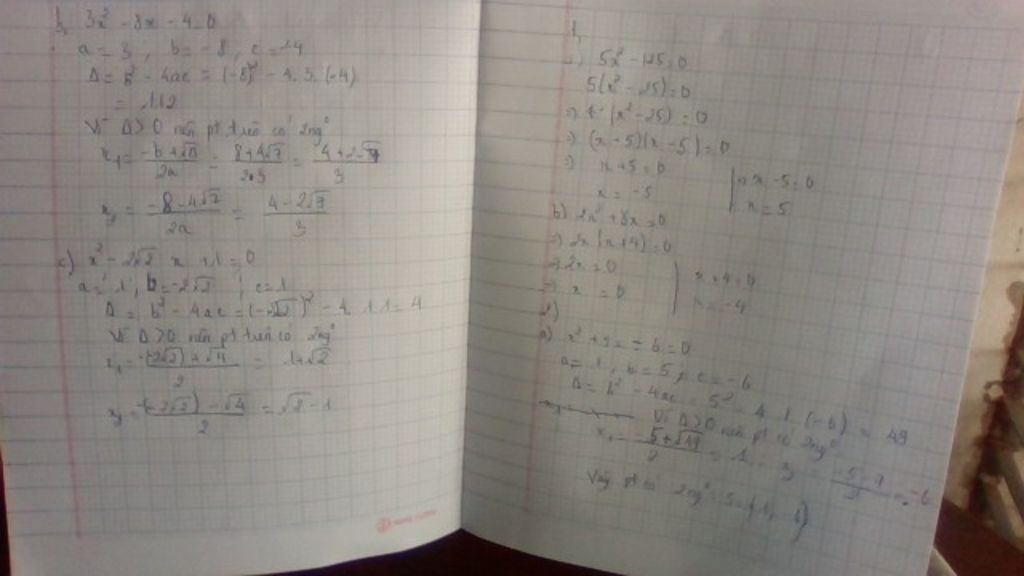 b, 3x² - 8x - 4 = 0
a = 3, b = -8, c = -4
Δ = b² - 4ac = (-8)² - 4.3.(-4)
= 112
Vì Δ > 0 nên pt trên có 2ng⁰
x₁ = (-b+√Δ)/2a = (8+4√7)/2.3 = (4+2√7)/3
x₂ = (-8-4√7)/2a = (4-2√7)/3
c) x² - 2√2 x + 1 = 0
a = 1, b = -2√2, c = 1
Δ = b² - 4ac = (-2√2)² - 4.1.1 = 4
Vì Δ > 0 nên pt trên có 2ng⁰
x₁ = (-(2√2)+√4)/2 = 1+√2
x₂ = (-(-2√2)-√4)/2 = √2-1
1,
5x² - 125 = 0
5(x² - 25) = 0
(x² - 25) = 0
(x - 5)(x - 5) = 0
x + 5 = 0 | x - 5 = 0
x = -5 | x = 5
b) 2x² + 8x = 0
2x(x+4) = 0
2x = 0 | x + 4 = 0
x = 0 | x = -4
2)
a) x² + 5x - 6 = 0
a = 1, b = 5, c = -6
Δ = b² - 4ac = 5² - 4.1.(-6) = 49
Vì Δ > 0 nên pt có 2ng⁰
x₁ = (-5+√49)/2 = 1 (-5-7)/2 = -6
Vậy pt có 2ng⁰ S = {1, -6}